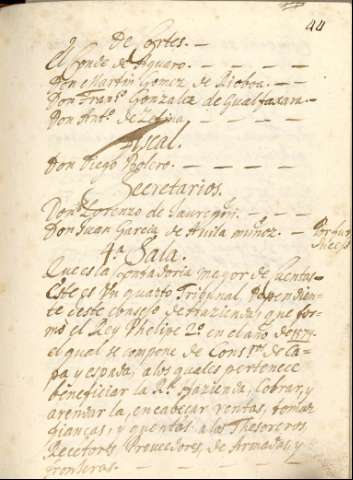 44
de Cortes. —
El Conde de Yguaro. — — —
Don Martin Gomez de Rioboa. — —
Don Fran.co Gonzalez de Gualtaxara. —
Don Ant.o de Zefina — — — —
Fiscal.
Don Diego Bolero. — — — —
Secretarios.
Don Lorenzo de Jauregui. — — —
Don Juan Garcia de Avila muñoz. —
4.a Sala.
Que es la Contadoria mayor de Cuentas —
Este es Un quarto Tribunal, dependien-
te de este consejo de Hazienda, que for-
mó el Rey Phelipe 2.o en el año de 1574.
el qual se compone de Cons.res de Ca-
pa y espada, a los quales pertenece
beneficiar la R.l Hazienda, Cobrar, y
arendar la, encabeçar rentas, tomar
fianças, y quentas a los Thesoreros,
Recetores, Proveedores, de Armadas, y
fronteras. — — — — —